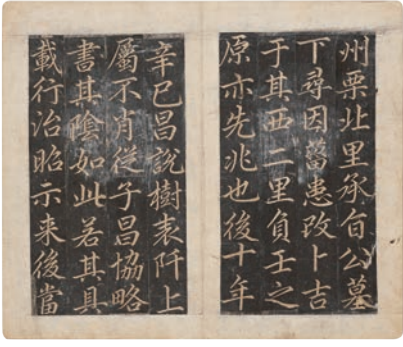 州栗北里承旨公墓
下尋因舊患改卜吉
于其西二里負壬之
原亦先兆也後十年
辛巳昌說樹表阡上
屬不肖從子昌協略
書其陰如此若其具
載行治昭示来後當